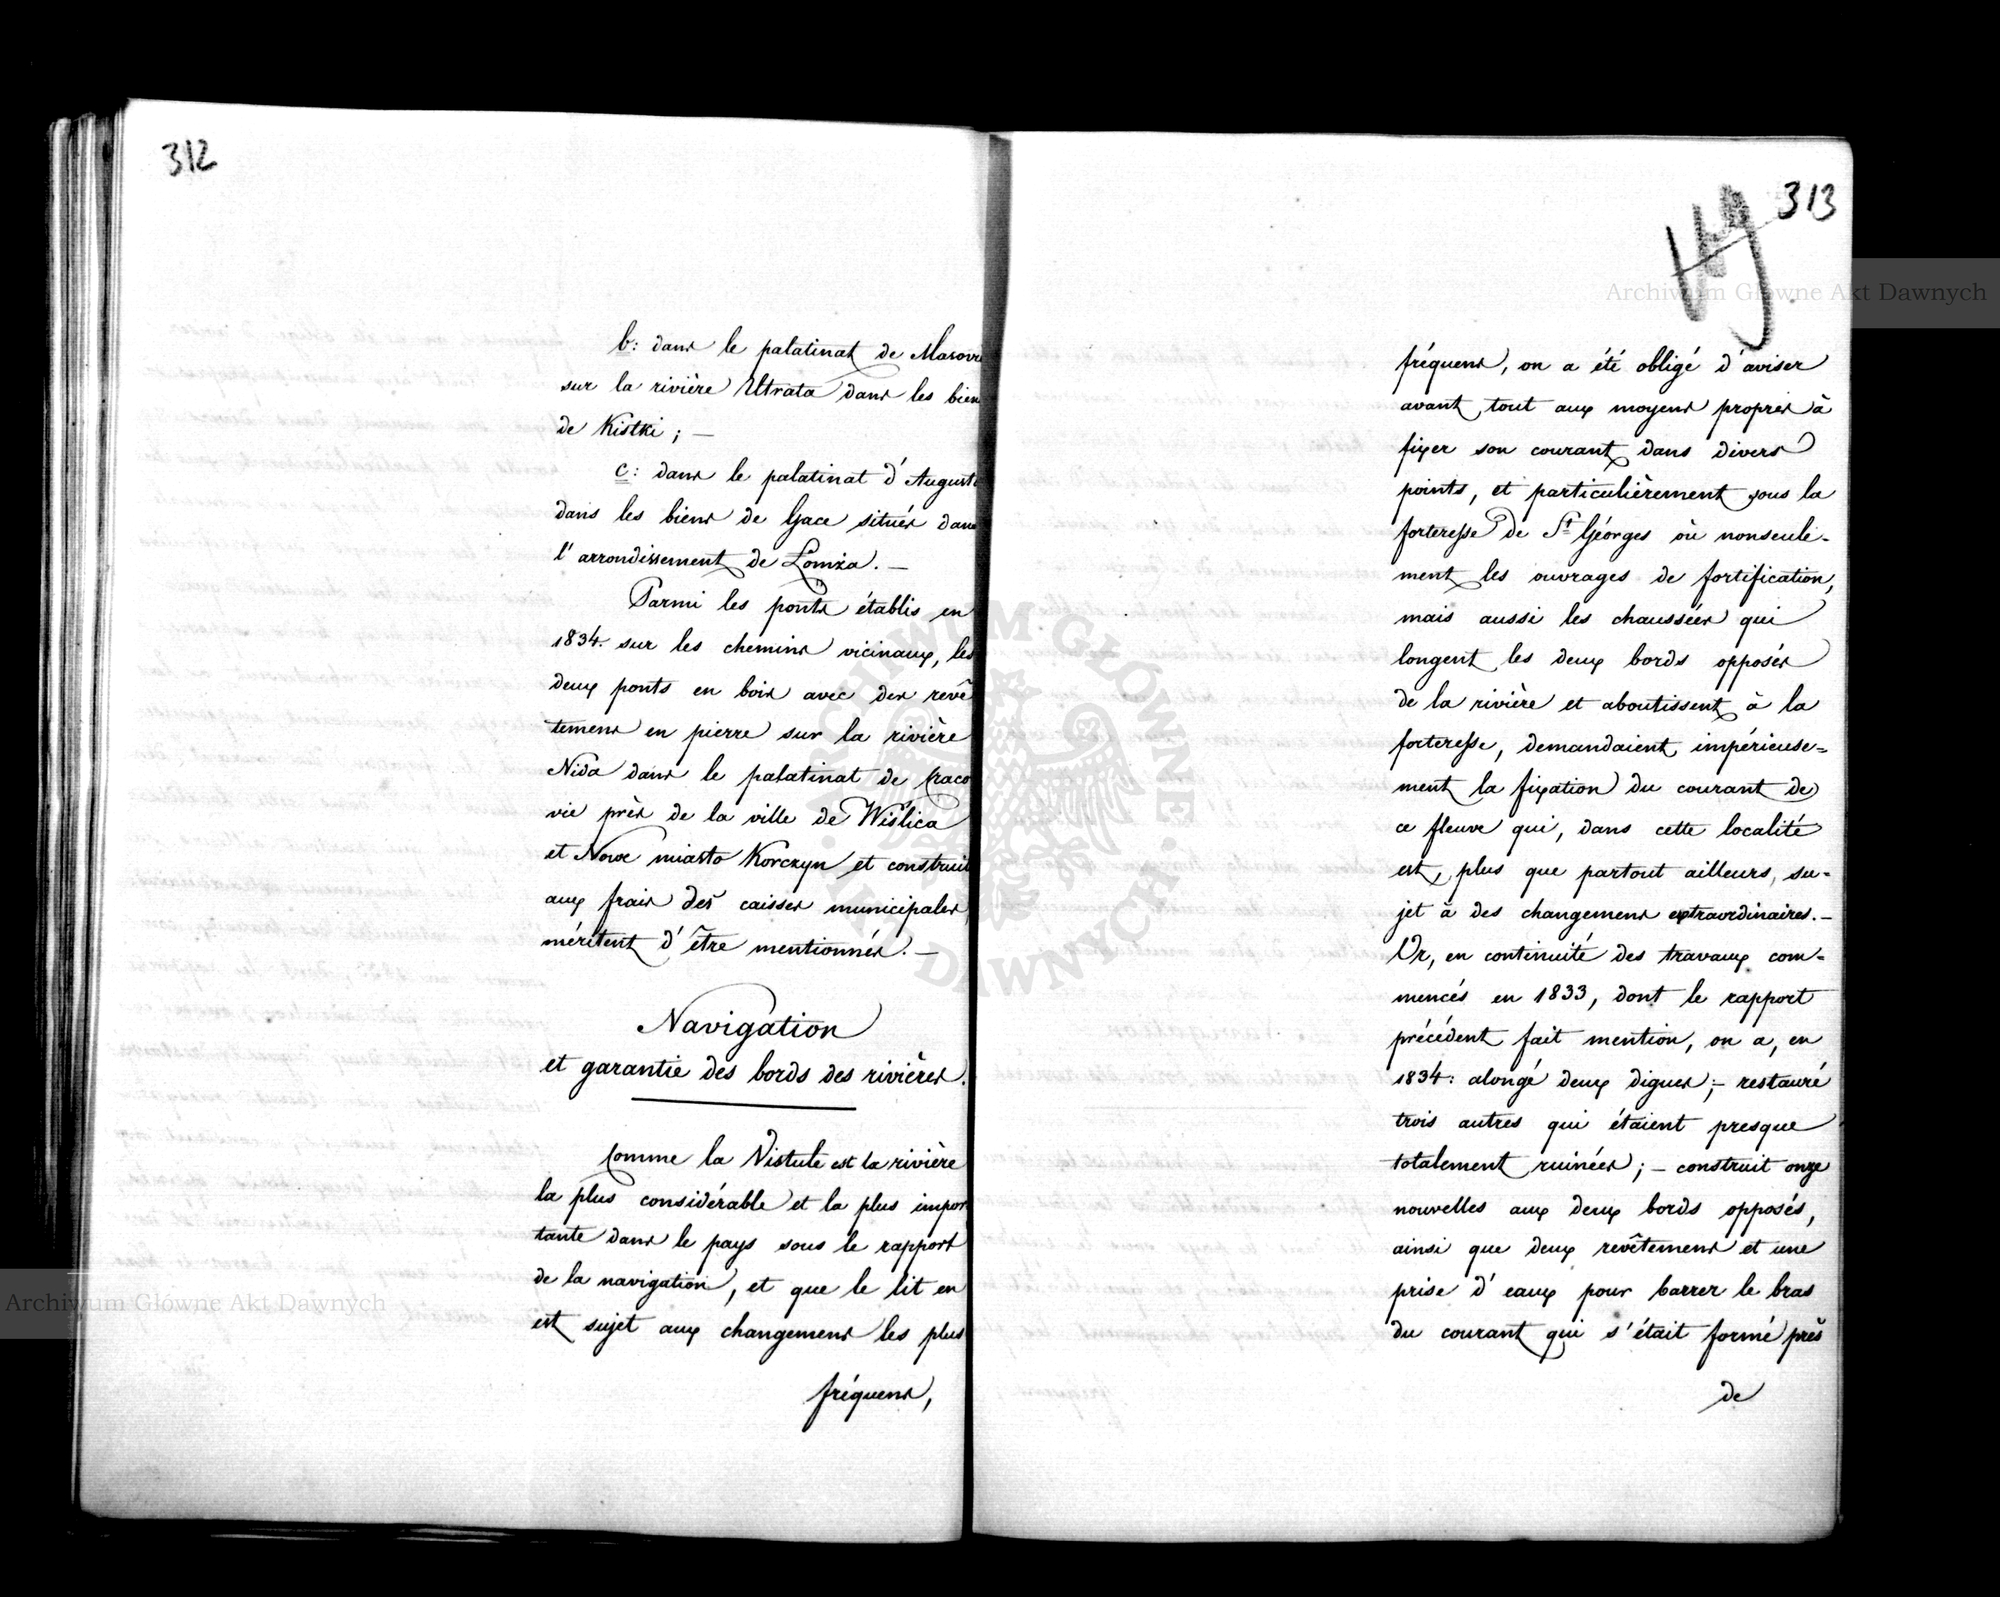 312
b: dans le palatinat de Masovie
sur la rivière Utrata dans les biens
de Kistki; —
c: dans le palatinat d'Augusto
dans les biens de Gace situés dans
l'arrondissement de Łomża. —
Parmi les ponts établis en
1834. sur les chemins vicinaux, les
deux ponts en bois avec des revê
temens en pierre sur la rivière
Nida dans le palatinat de Craco
vie près de la ville de Wiślica
et Nowe miasto Korczyn et construit
aux frais des caisses municipales,
méritent d'être mentionnés. —
Navigation
et garantie des bords des rivières.
Comme la Vistule est la rivière
la plus considérable et la plus impor
tante dans le pays sous le rapport
de la navigation, et que le lit en
est sujet aux changemens les plus
fréquens,
313
fréquens, on a été obligé d'aviser
avant tout aux moyens propres à
fixer son courant dans divers
points, et particulièrement sous la
forteresse de St Géorges où nonseule-
ment les ouvrages de fortification,
mais aussi les chaussées qui
longent les deux bords opposés
de la rivière et aboutissent à la
forteresse, demandaient impérieuse=
ment la fixation du courant de
ce fleuve qui, dans cette localité
est, plus que partout ailleurs, su-
jet à des changemens extraordinaires. —
Or, en continuité des travaux com=
mencés en 1833, dont le rapport
précédent fait mention, on a, en
1834: alongé deux digues; — restauré
trois autres qui étaient presque
totalement ruinées; — construit onze
nouvelles aux deux bords opposés,
ainsi que deux revêtemens et une
prise d'eaux pour barrer le bras
du courant qui s'était formé près
de
Archiwum Główne Akt Dawnych
Archiwum Główne Akt Dawnych
ARCHIWUM GŁÓWNE · AKT DAWNYCH ·